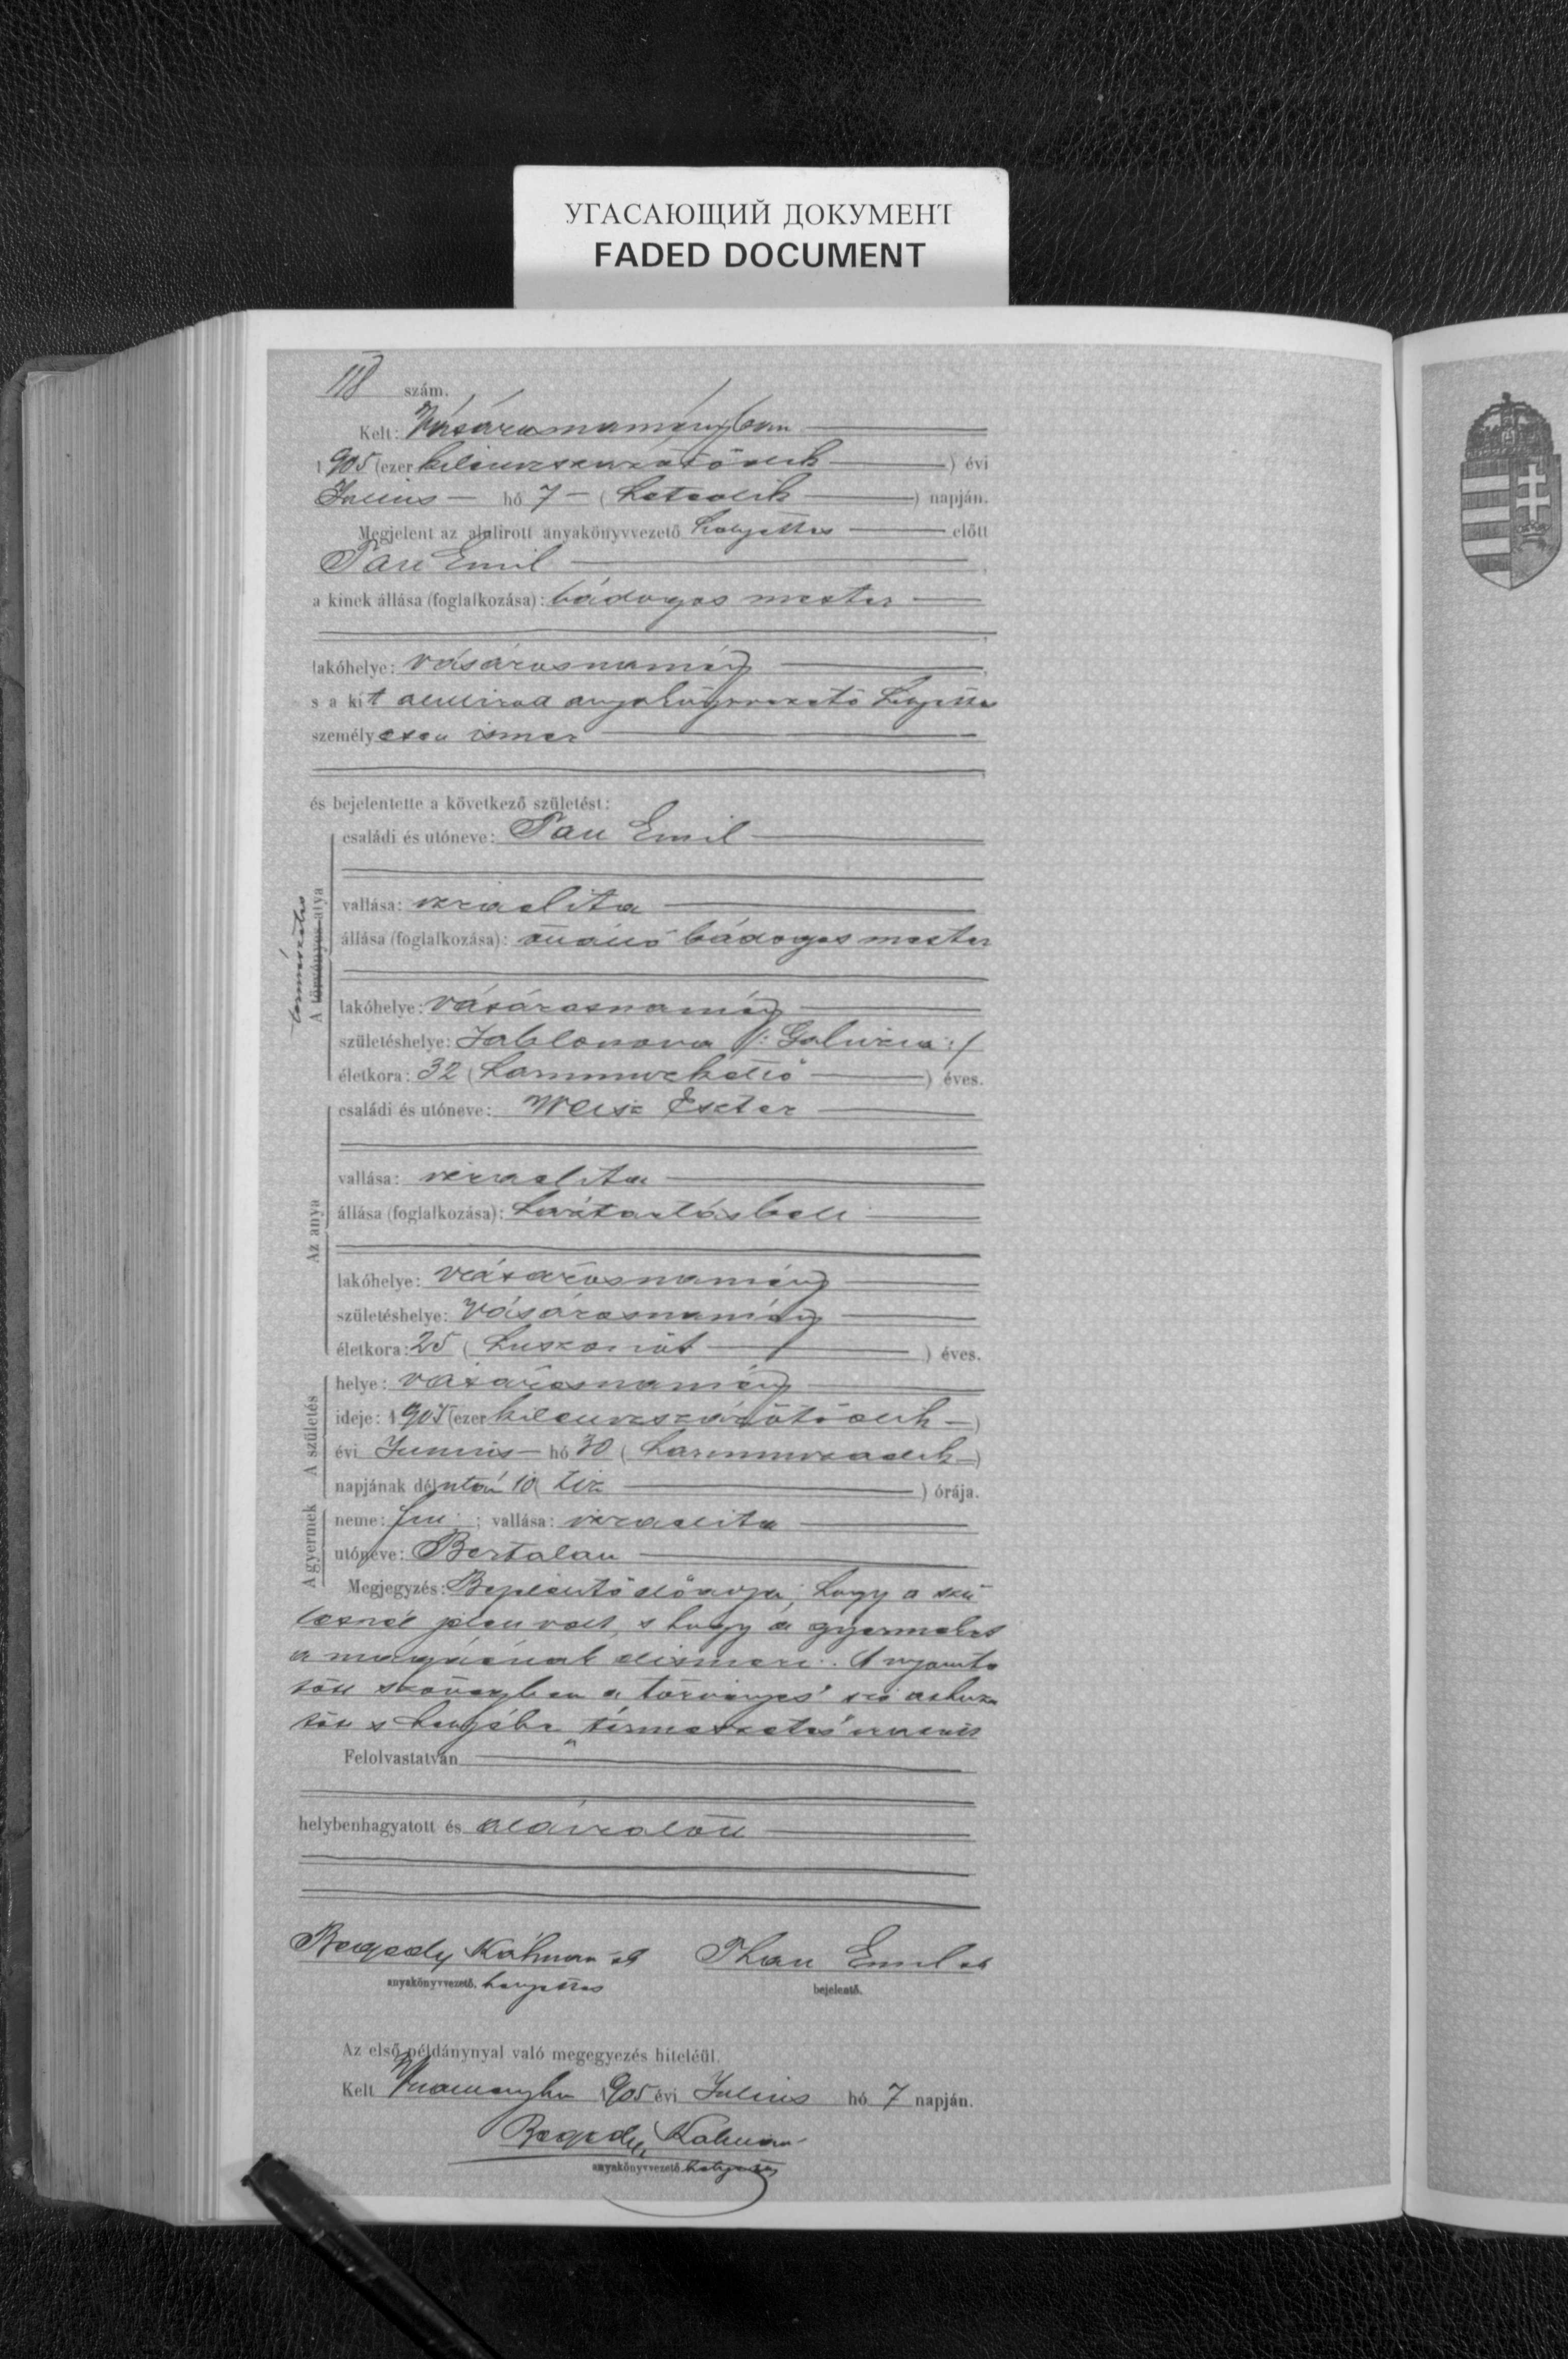 УГАСАЮЩИЙ ДОКУМЕНТ
FADED DOCUMENT
118 szám.
Kelt: Vásárosnaményban
1905 (ezer kilenczszázötödik) évi
Julius hó 7 (hetedik) napján.
Megjelent az alulirott anyakönyvvezető helyettes előtt
Pau Emil
a kinek állása (foglalkozása): bádogos mester
lakóhelye: vásárosnamény
s a kit alulirott anyakönyvvezető helyettes
személyesen ismer
és bejelentette a következő születést:
természetes
A törvényes atya
családi és utóneve: Pau Emil
vallása: izraelita
állása (foglalkozása): önálló bádogos mester
lakóhelye: vásárosnamény
születéshelye: Jablonova /: Galiczia :/
életkora: 32 (harminczkettő) éves.
Az anya
családi és utóneve: Weisz Eszter
vallása: izraelita
állása (foglalkozása): háztartásbeli
lakóhelye: vásárosnamény
születéshelye: Vásárosnamény
életkora: 25 (huszonöt) éves.
A születés
helye: vásárosnamény
ideje: 1905 (ezer kilenczszázötödik)
évi Junius hó 30 (harminczadik)
napjának délután 10 (tiz) órája.
A gyermek
neme: fiu; vallása: izraelita
utóneve: Bertalan
Megjegyzés: Bejelentő előadja, hogy a szü
lésnél jelen volt, s hogy a gyermeket
a magáénak elismeri. A nyomta
tott szövegben a törvényes szó
s helyébe "természetes"
Felolvastatván
helybenhagyatott és aláiratott
Begedy Kálmán sk Thau Emil sk
anyakönyvvezető. helyettes bejelentő.
Az első példánynyal való megegyezés hiteléül.
Kelt 1905 évi Julius hó 7 napján.
Begedy Kálmán
anyakönyvvezető helyettes